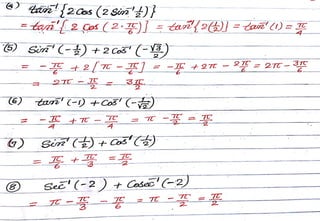 (4) tan⁻¹{2 Cos (2 Sin⁻¹ ½)}
= tan⁻¹{2 Cos (2·π/6)} = tan⁻¹{2(½)} = tan⁻¹(1) = π/4
(5) Sin⁻¹(-½) + 2 Cos⁻¹(-√3/2)
= -π/6 + 2[π - π/6] = -π/6 + 2π - 2π/6 = 2π - 3π/6
= 2π - π/2 = 3π/2
(6) tan⁻¹(-1) + Cos⁻¹(-1/√2)
= -π/4 + π - π/4 = π - π/2 = π/2
(7) Sin⁻¹(½) + Cos⁻¹(½)
= π/6 + π/3 = π/2
(8) Sec⁻¹(-2) + Cosec⁻¹(-2)
= π - π/3 - π/6 = π - π/2 = π/2